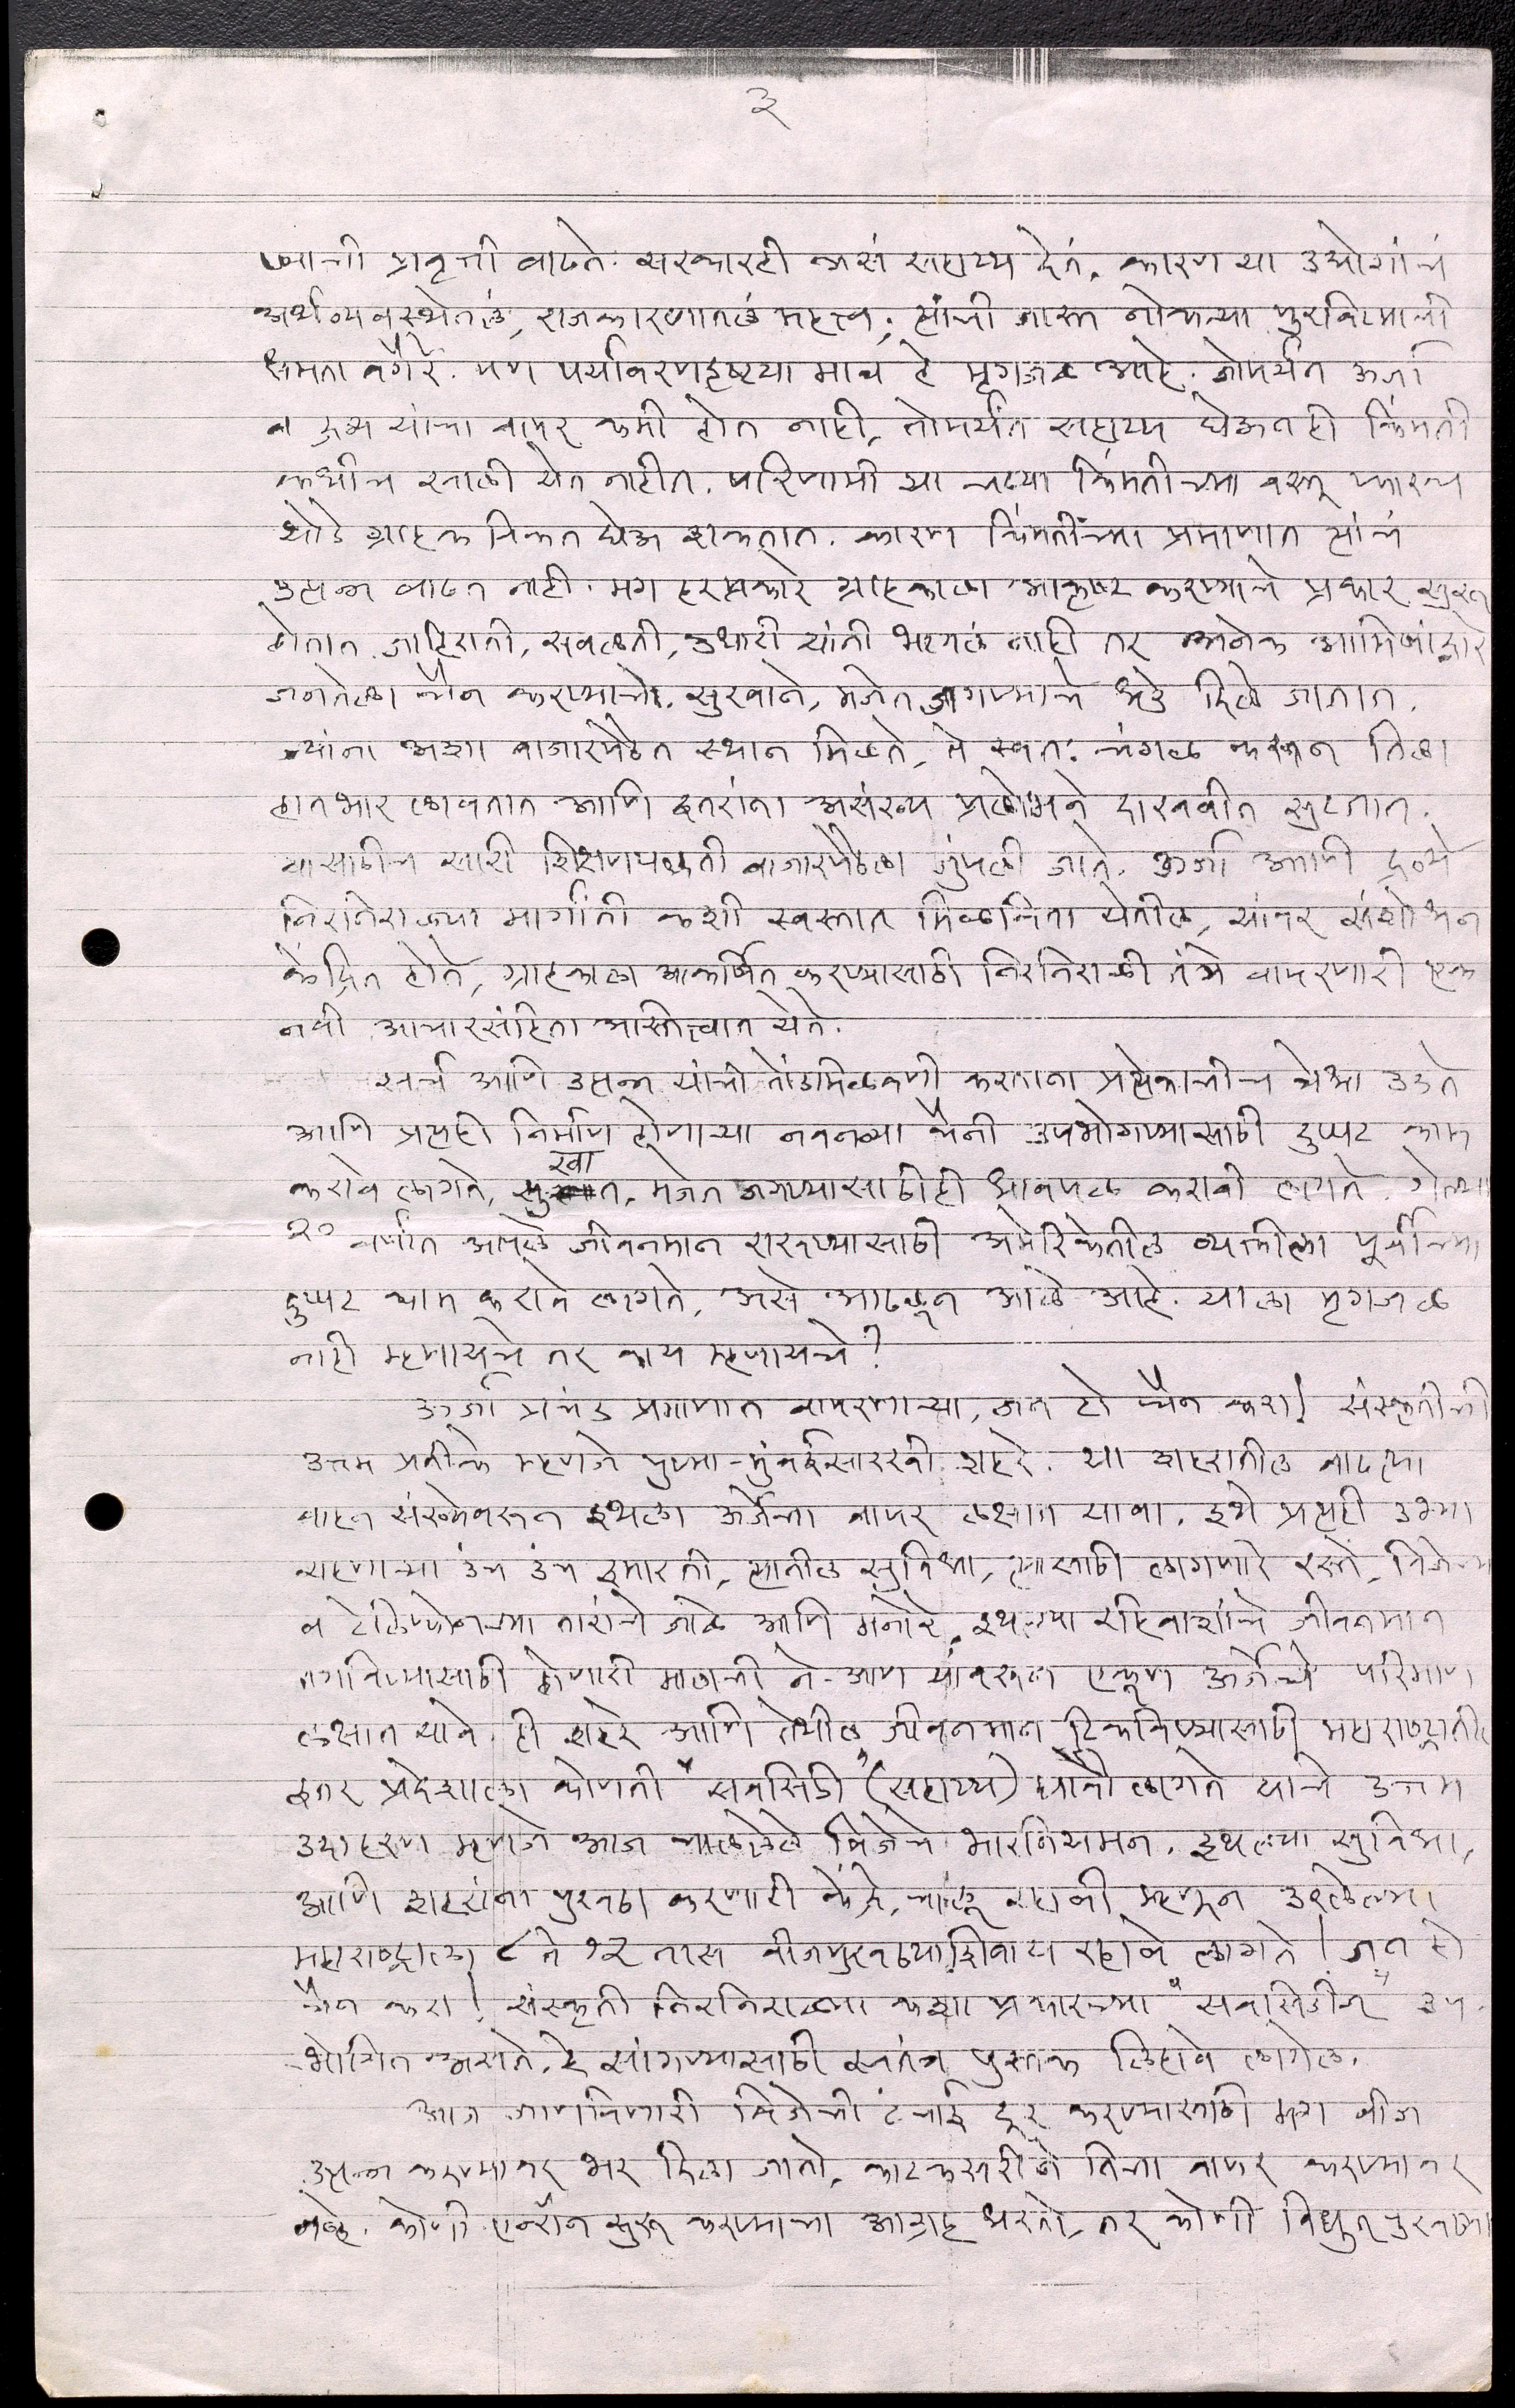 ३
ण्याची प्रवृत्ती वाढते. सरकारही असं सहाय्य देतं. कारण या उद्योगांचं
अर्थव्यवस्थेतलं, राजकारणातलं महत्त्व, त्यांची जास्त नोकऱ्या पुरविण्याची
क्षमता वगैरे. पण पर्यावरणदृष्ट्या मात्र हे मृगजळ आहे. जोपर्यंत ऊर्जा
व द्रव्य यांचा वापर कमी होत नाही, तोपर्यंत सहाय्य घेऊनही किंमती
कधीच खाली येत नाहीत. परिणामी या चढ्या किंमतीच्या वस्तू फारच
थोडे ग्राहक विकत घेऊ शकतात. कारण किंमतींच्या प्रमाणात त्यांचं
उत्पन्न वाढत नाही. मग हरप्रकारे ग्राहकाला आकृष्ट करण्याचे प्रकार सुरू
होतात. जाहिराती, सवलती, उधारी यांनी भागलं नाही तर अनेक आमिषांद्वारे
जनतेला चैन करण्याचे, सुखाने, मजेत जगण्याचे धडे दिले जातात.
ज्यांना अशा बाजारपेठेत स्थान मिळते, ते स्वतः चंगळ करून तिला
हातभार लावतात आणि इतरांना असंख्य प्रलोभने दाखवीत सुटतात.
यासाठीच सारी शिक्षणपद्धती बाजारपेठेला जुंपली जाते. ऊर्जा आणि द्रव्ये
निरनिराळ्या मार्गांनी कशी स्वस्तात मिळविता येतील, यांवर संशोधन
केंद्रित होते, ग्राहकाला आकर्षित करण्यासाठी निरनिराळी तंत्रे वापरणारी एक
नवी आचारसंहिता अस्तित्वात येते.
खर्च आणि उत्पन्न यांची तोंडमिळवणी करताना प्रत्येकाचीच त्रेधा उडते
आणि प्रत्यही निर्माण होणाऱ्या नवनव्या चैनी उपभोगण्यासाठी दुप्पट काम
करावे लागते, सुखात, मजेत जगण्यासाठीही धावपळ करावी लागते. गेल्या
२० वर्षांत आपले जीवनमान राखण्यासाठी अमेरिकेतील व्यक्तीला पूर्वीच्या
दुप्पट काम करावे लागते, असे आढळून आले आहे. याला मृगजळ
नाही म्हणायचे तर काय म्हणायचे?
ऊर्जा प्रचंड प्रमाणात वापरणाऱ्या, जन हो चैन करा! संस्कृतीची
उत्तम प्रतीके म्हणजे पुण्या-मुंबईसारखी शहरे. या शहरातील वाढत्या
वाहन संख्येवरून इथला ऊर्जेचा वापर लक्षात यावा. इथे प्रत्यही उभ्या
राहणाऱ्या उंच उंच इमारती, त्यातील सुविधा, त्यासाठी लागणारे रस्ते, विजेच्या
व टेलिफोनच्या तारांचे जाळे आणि मनोरे, इथल्या रहिवाशांचे जीवनमान
जगविण्यासाठी होणारी मालाची ने-आण यांवरून एकूण ऊर्जेचे परिमाण
लक्षात यावे. ही शहरे आणि तेथील जीवनमान टिकविण्यासाठी महाराष्ट्रातील
इतर प्रदेशाला कोणती "सबसिडी" (सहाय्य) द्यावी लागते याचे उत्तम
उदाहरण म्हणजे आज चाललेले विजेचे भारनियमन. इथल्या सुविधा,
आणि शहरांना पुरवठा करणारी केंद्रे, चालू रहावी म्हणून उरलेल्या
महाराष्ट्राला ८ ते १२ तास वीजपुरवठ्याशिवाय रहावे लागते! जन हो
चैन करा! संस्कृती निरनिराळ्या कशा प्रकारच्या "सबसिडीज" उप-
भोगित असते, हे सांगण्यासाठी स्वतंत्र पुस्तक लिहावे लागेल.
आज जाणविणारी विजेची टंचाई दूर करण्यासाठी मग वीज
उत्पन्न करण्यावर भर दिला जातो, काटकसरीने तिचा वापर करण्यावर
नव्हे. कोणी एन्रॉन सुरू करण्याचा आग्रह धरतो, तर कोणी विद्युत पुरवठ्या